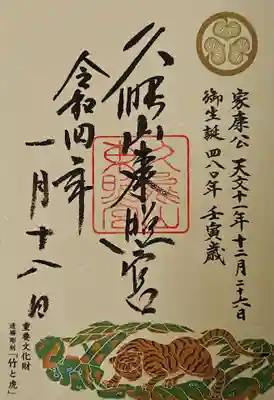 家康公 天文十一年十二月二十六日
御生誕四八〇年 壬寅歳
久能山東照宮
令和四年
一月十八日
重要文化財
透塀彫刻「竹と虎」